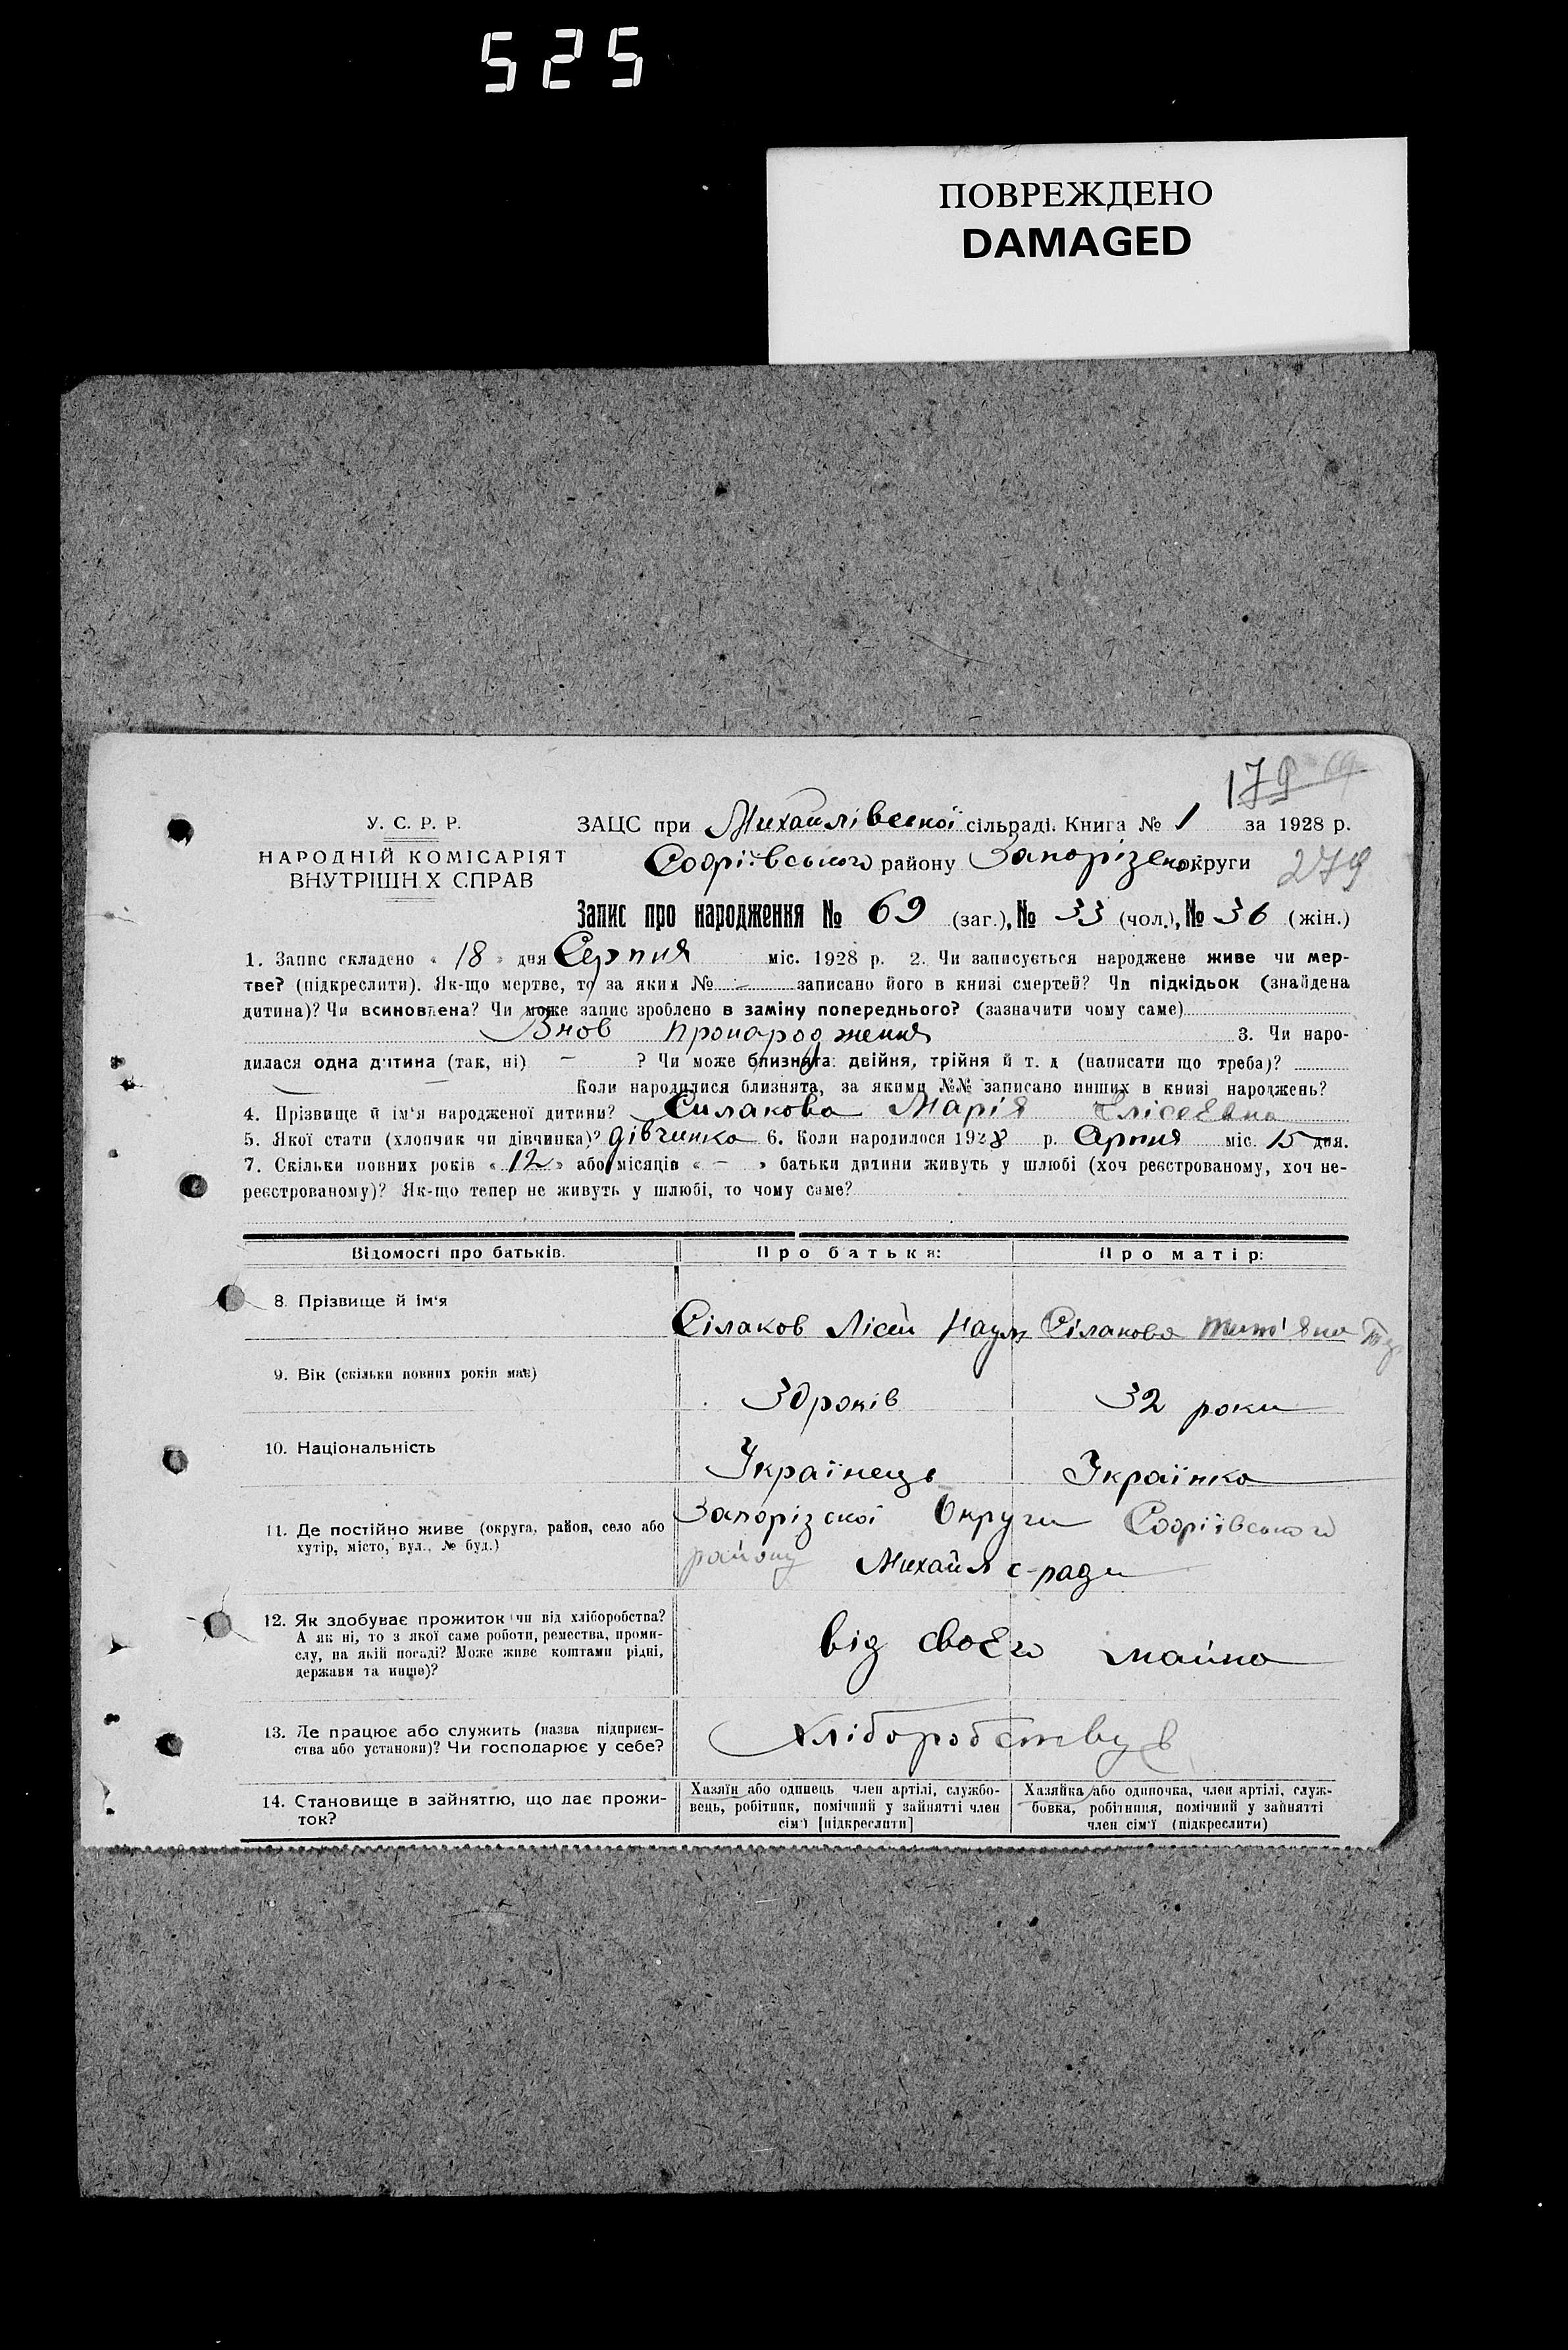 525
ПОВРЕЖДЕНО
DAMAGED
179
У. С. Р. Р.
НАРОДНІЙ КОМІСАРІЯТ
ВНУТРІШН Х СПРАВ
ЗАЦС при Михайлівської сільраді. Книга № 1 за 1928 р.
Софіївського району Запорізької округи 279
Запис про народження № 69 (заг.), № 33 (чол.), № 36 (жін.)
1. Запис складено « 18 » дня Серпня міс. 1928 р. 2. Чи записується народжене живе чи мер-
тве? (підкреслити). Як-що мертве, то за яким № - записано його в книзі смертей? Чи підкідьок (знайдена
дитина)? Чи всиновлена? Чи може запис зроблено в заміну попереднього? (зазначити чому саме)
Знов про народження 3. Чи наро-
дилася одна дитина (так, ні) - ? Чи може близнята: двійня, трійня й т. д (написати що треба)?
Коли народилися близнята, за якими №№ записано инших в книзі народжень?
4. Прізвище й ім'я народженої дитини? Силакова Марія Єлісеєвна
5. Якої стати (хлопчик чи дівчинка)? дівчинка 6. Коли народилося 1928 р. Серпня міс. 15 дня.
7. Скільки повних років « 12 » або місяців « - » батьки дитини живуть у шлюбі (хоч реєстрованому, хоч не-
реєстрованому)? Як-що тепер не живуть у шлюбі, то чому саме?
Відомості про батьків. Про батька: Про матір:
8. Прізвище й ім'я
Сілаков Лісей Наум Сілакова
9. Вік (скільки повних років має)
30 років 32 роки
10. Національність
Українець Українка
11. Де постійно живе (округа, район, село або
хутір, місто, вул., № буд.)
Запорізскої Округи Софіївського
району Михайл с-ради
12. Як здобуває прожиток чи від хліборобства?
А як ні, то з якої саме роботи, ремества, проми-
слу, на якій посаді? Може живе коштами рідні,
держави та инше)?
від своєго майна
13. Де працює або служить (назва підприєм-
ства або установи)? Чи господарює у себе?
Хліборобству
14. Становище в зайняттю, що дає прожи-
ток?
Хазяїн або одинець член артілі, службо-
вець, робітник, помічний у зайнятті член
сім'ї [підкреслити]
Хазяйка або одиночка, член артілі, служ-
бовка, робітниця, помічний у зайнятті
член сім'ї (підкреслити)